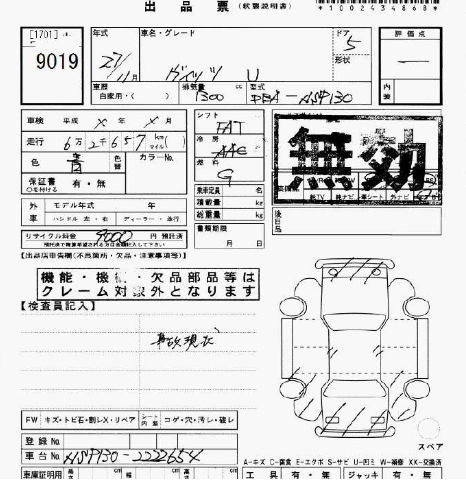 出品票 (状態説明書)
*100243486８*
[1701]
9019
年式 27/11月
車名・グレード ヴィッツ U
ドア 5
形状
評価点 —
内装
車歴 自家用・( )
排気量 cc 1300
型式 DBA-NSP130
車検 平成 × 年 × 月
走行 6万2千657 km(マイル)
色 青 色替
カラーNo.
保証書 有・無
○を付ける
シフト FAT
冷房 AAC
燃料 G
乗車定員 名
積載量 kg
総重量 kg
書類期限
月 日
無効
後日品
外車 モデル年式 年
ハンドル 左・右 ディーラー・並行
リサイクル料金 9000 円 預託済
【出品店申告欄(不具箇所・欠品・注意事項等)】
機能・機 ・欠品部品等は
クレーム対象外となります
【検査員記入】
事故現状
FW キズ・トビ石・割レX・リペア シート内装 コゲ・穴・汚レ・破レ
登録No.
車台No. NSP130-2222654
スペア
A-キズ C-腐食 E-エクボ S-サビ U-凹ミ W-補修 XX-交換済
車庫証明用 長さ cm 幅 cm 高さ cm
工具 有・無 ジャッキ 有・無